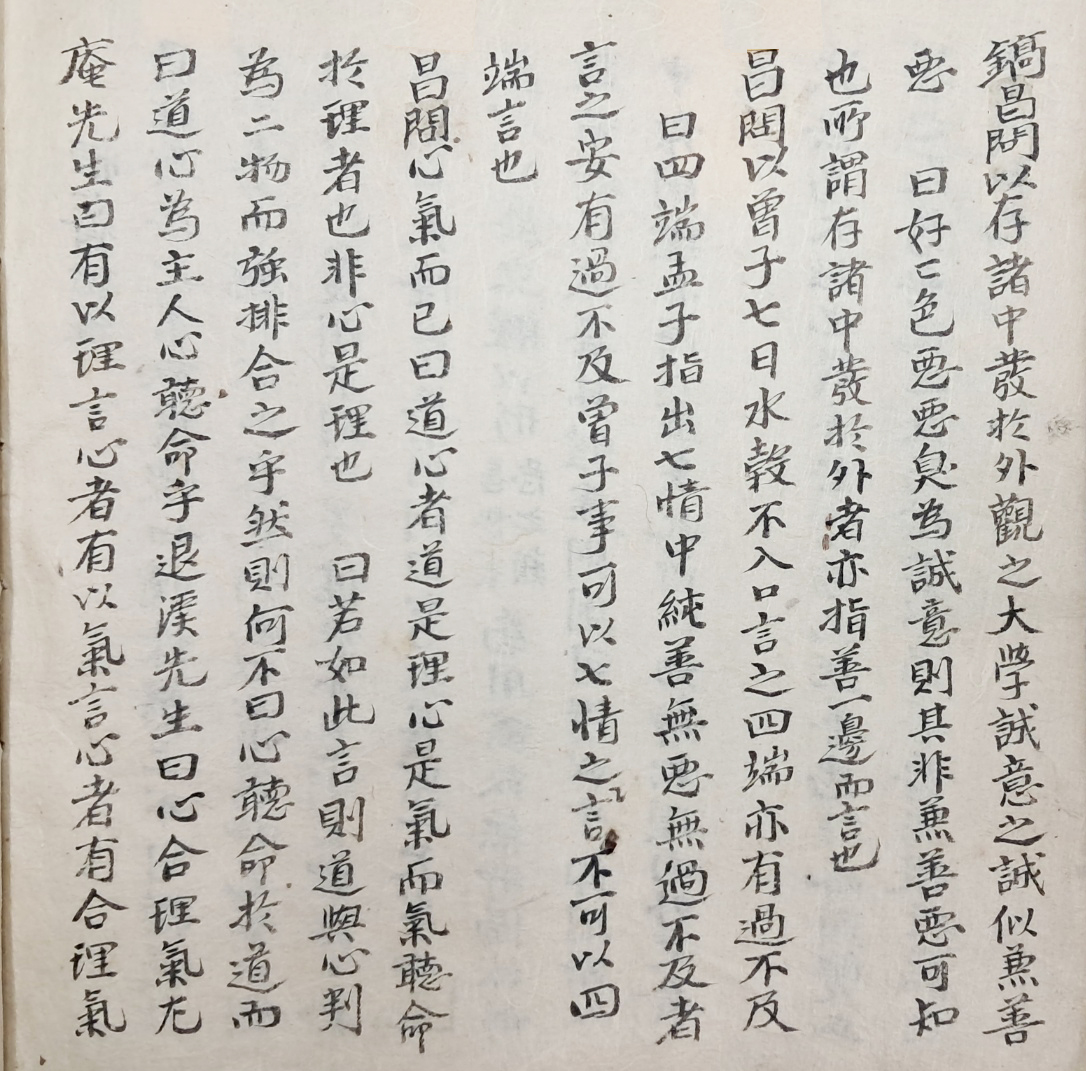 鎬昌問以存諸中發於外觀之大學誠意之誠似兼善
惡　曰好〻色惡惡臭為誠意則其非兼善惡可知
也所謂存諸中發於外者亦指善一邊而言也
昌問以曾子七日水穀不入口言之四端亦有過不及
曰四端孟子指出七情中純善無惡無過不及者
言之安有過不及曾子事可以七情之言不可以四
端言也
昌問心氣而已曰道心者道是理心是氣而氣聽命
於理者也非心是理也　曰若如此言則道與心判
為二物而強排合之乎然則何不曰心聽命於道而
曰道心為主人心聽命乎退溪先生曰心合理氣尤
庵先生曰有以理言心者有以氣言心者有合理氣